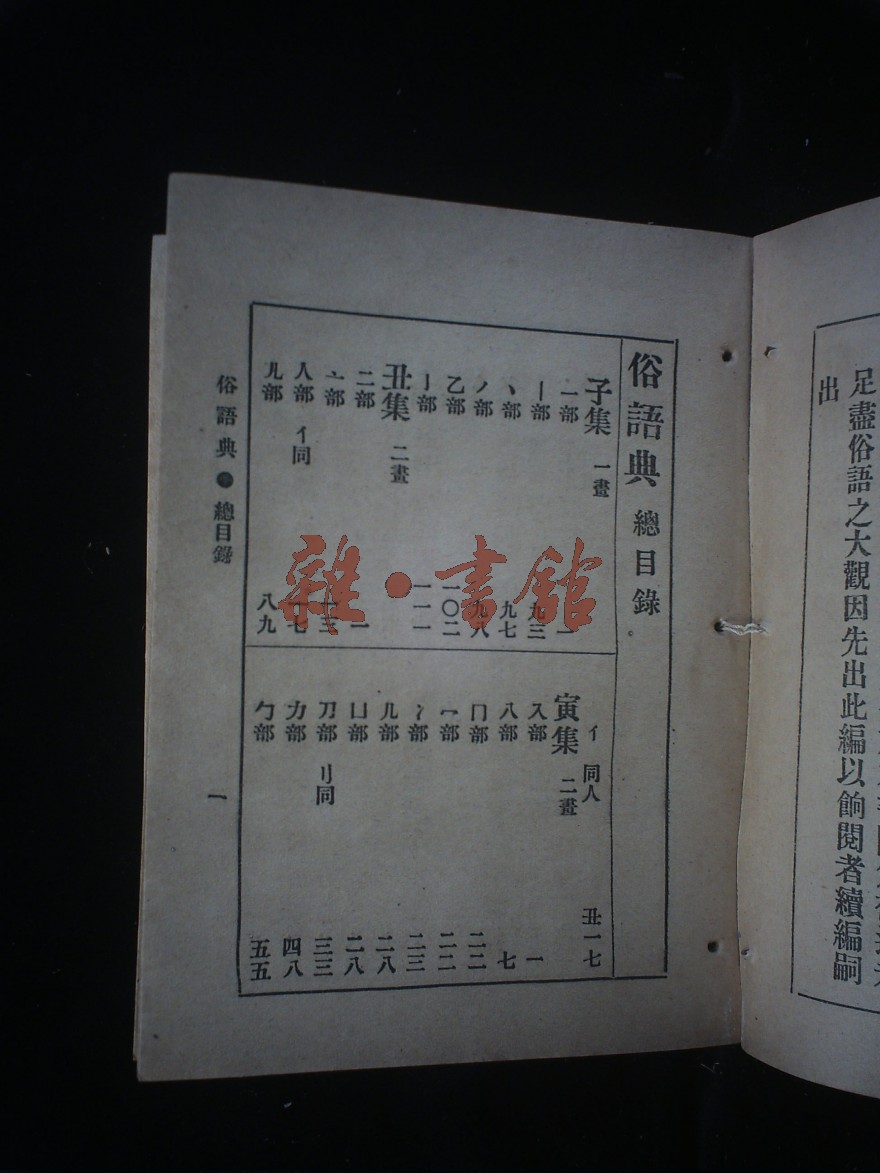 足盡俗語之大觀因先出此編以餉閱者續編嗣
出
俗語典 總目錄
子集 一畫
一部 一
丨部 九三
丶部 九七
丿部 九八
乙部 一〇二
亅部 一一一
丑集 二畫
二部 一
亠部 一三
人部 亻同 一七
儿部 八九
亻 同人 丑一七
寅集 二畫
入部 一
八部 七
冂部 二二
冖部 二二
冫部 二三
几部 二八
凵部 二八
刀部 刂同 三三
力部 四八
勹部 五五
俗語典 ● 總目錄
一
雜·書館